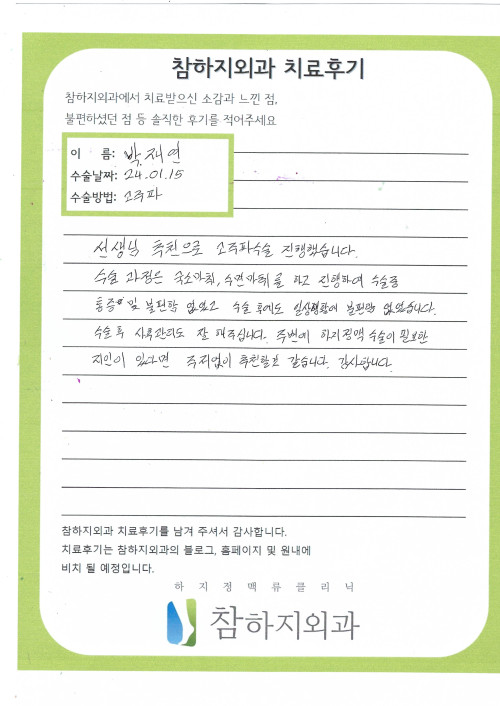 참하지외과 치료후기
참하지외과에서 치료받으신 소감과 느낀 점,
불편하셨던 점 등 솔직한 후기를 적어주세요
이 름: 박재연
수술날짜: 24.01.15
수술방법: 고주파
선생님 추천으로 고주파수술 진행했습니다.
수술 과정은 국소마취, 수면마취를 하고 진행하여 수술중
통증 및 불편함 없었고 수술 후에도 일상생활에 불편함 없었습니다.
수술 후 사후관리도 잘 해주십니다. 주변에 하지정맥 수술이 필요한
지인이 있다면 주저없이 추천할것 같습니다. 감사합니다.
참하지외과 치료후기를 남겨 주셔서 감사합니다.
치료후기는 참하지외과의 블로그, 홈페이지 및 원내에
비치 될 예정입니다.
하지정맥류클리닉
참하지외과